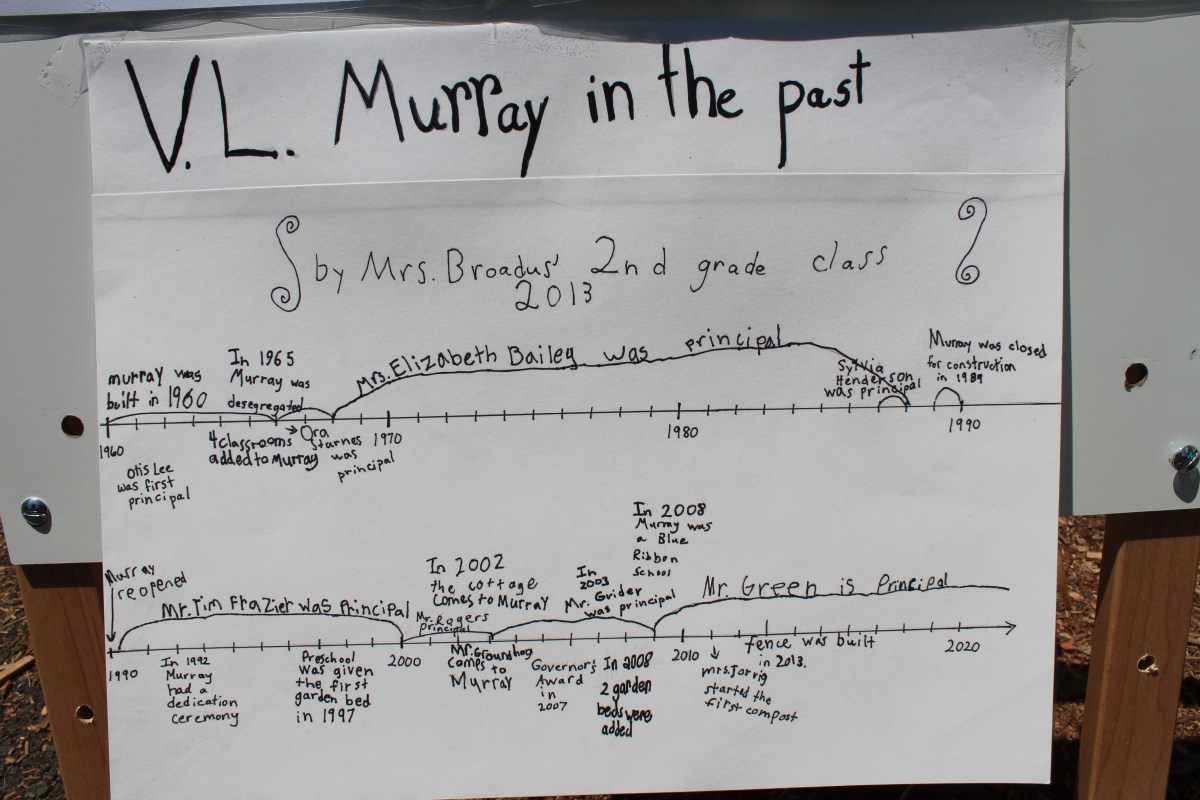 V.L. Murray in the past
by Mrs. Broadus' 2nd grade class
2013
murray was
built in 1960
In 1965
Murray was
desegregated
Mrs. Elizabeth Bailey was principal
Sylvia
Henderson
was principal
Murray was closed
for construction
in 1989
1960
Otis Lee
was first
principal
4 classrooms
added to Murray
→ Ora
Starnes
was
principal
1970
1980
1990
Murray
reopened
Mr. Tim Frazier was Principal
In 2002
the cottage
comes to Murray
Mr. Rogers
principal
In
2003
Mr. Grider
was principal
In 2008
Murray was
a Blue
Ribbon
School
Mr. Green is Principal
1990
In 1992
Murray
had a
dedication
ceremony
Preschool
was given
the first
garden bed
in 1997
2000
Mr. Groundhog
comes to
Murray
Governor's
Award
in
2007
In 2008
2 garden
beds were
added
2010
mrs. Jorrig
started the
first compost
fence was built
in 2013.
2020